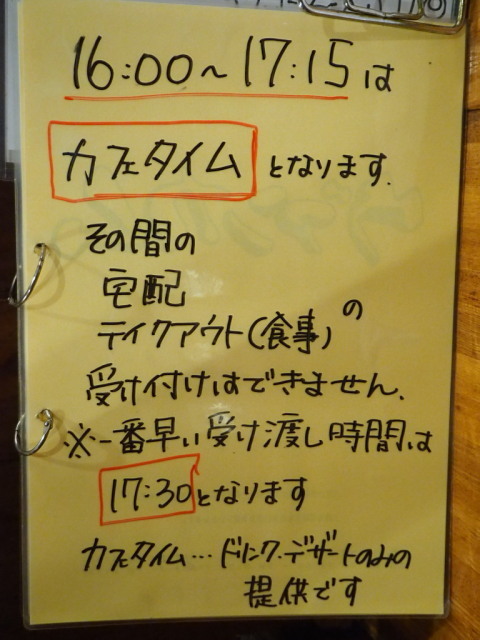 16:00〜17:15は
カフェタイムとなります.
その間の
宅配
テイクアウト(食事)の
受け付けはできません.
※一番早い受け渡し時間は
17:30となります
カフェタイム…ドリンク.デザートのみの
提供です